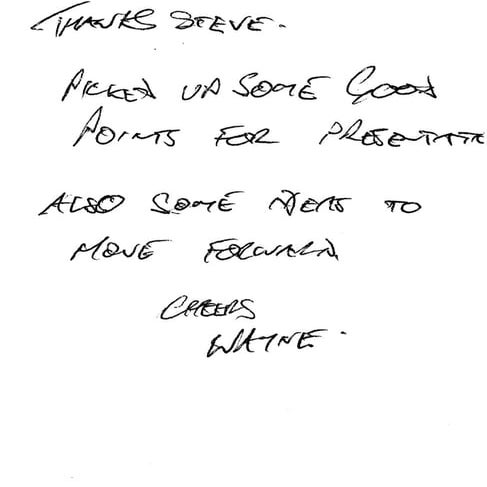 THANKS STEVE.
PICKED UP SOME GOOD
POINTS FOR PRESENTATI
ALSO SOME IDEAS TO
MOVE FORWARD
CHEERS
WAYNE.